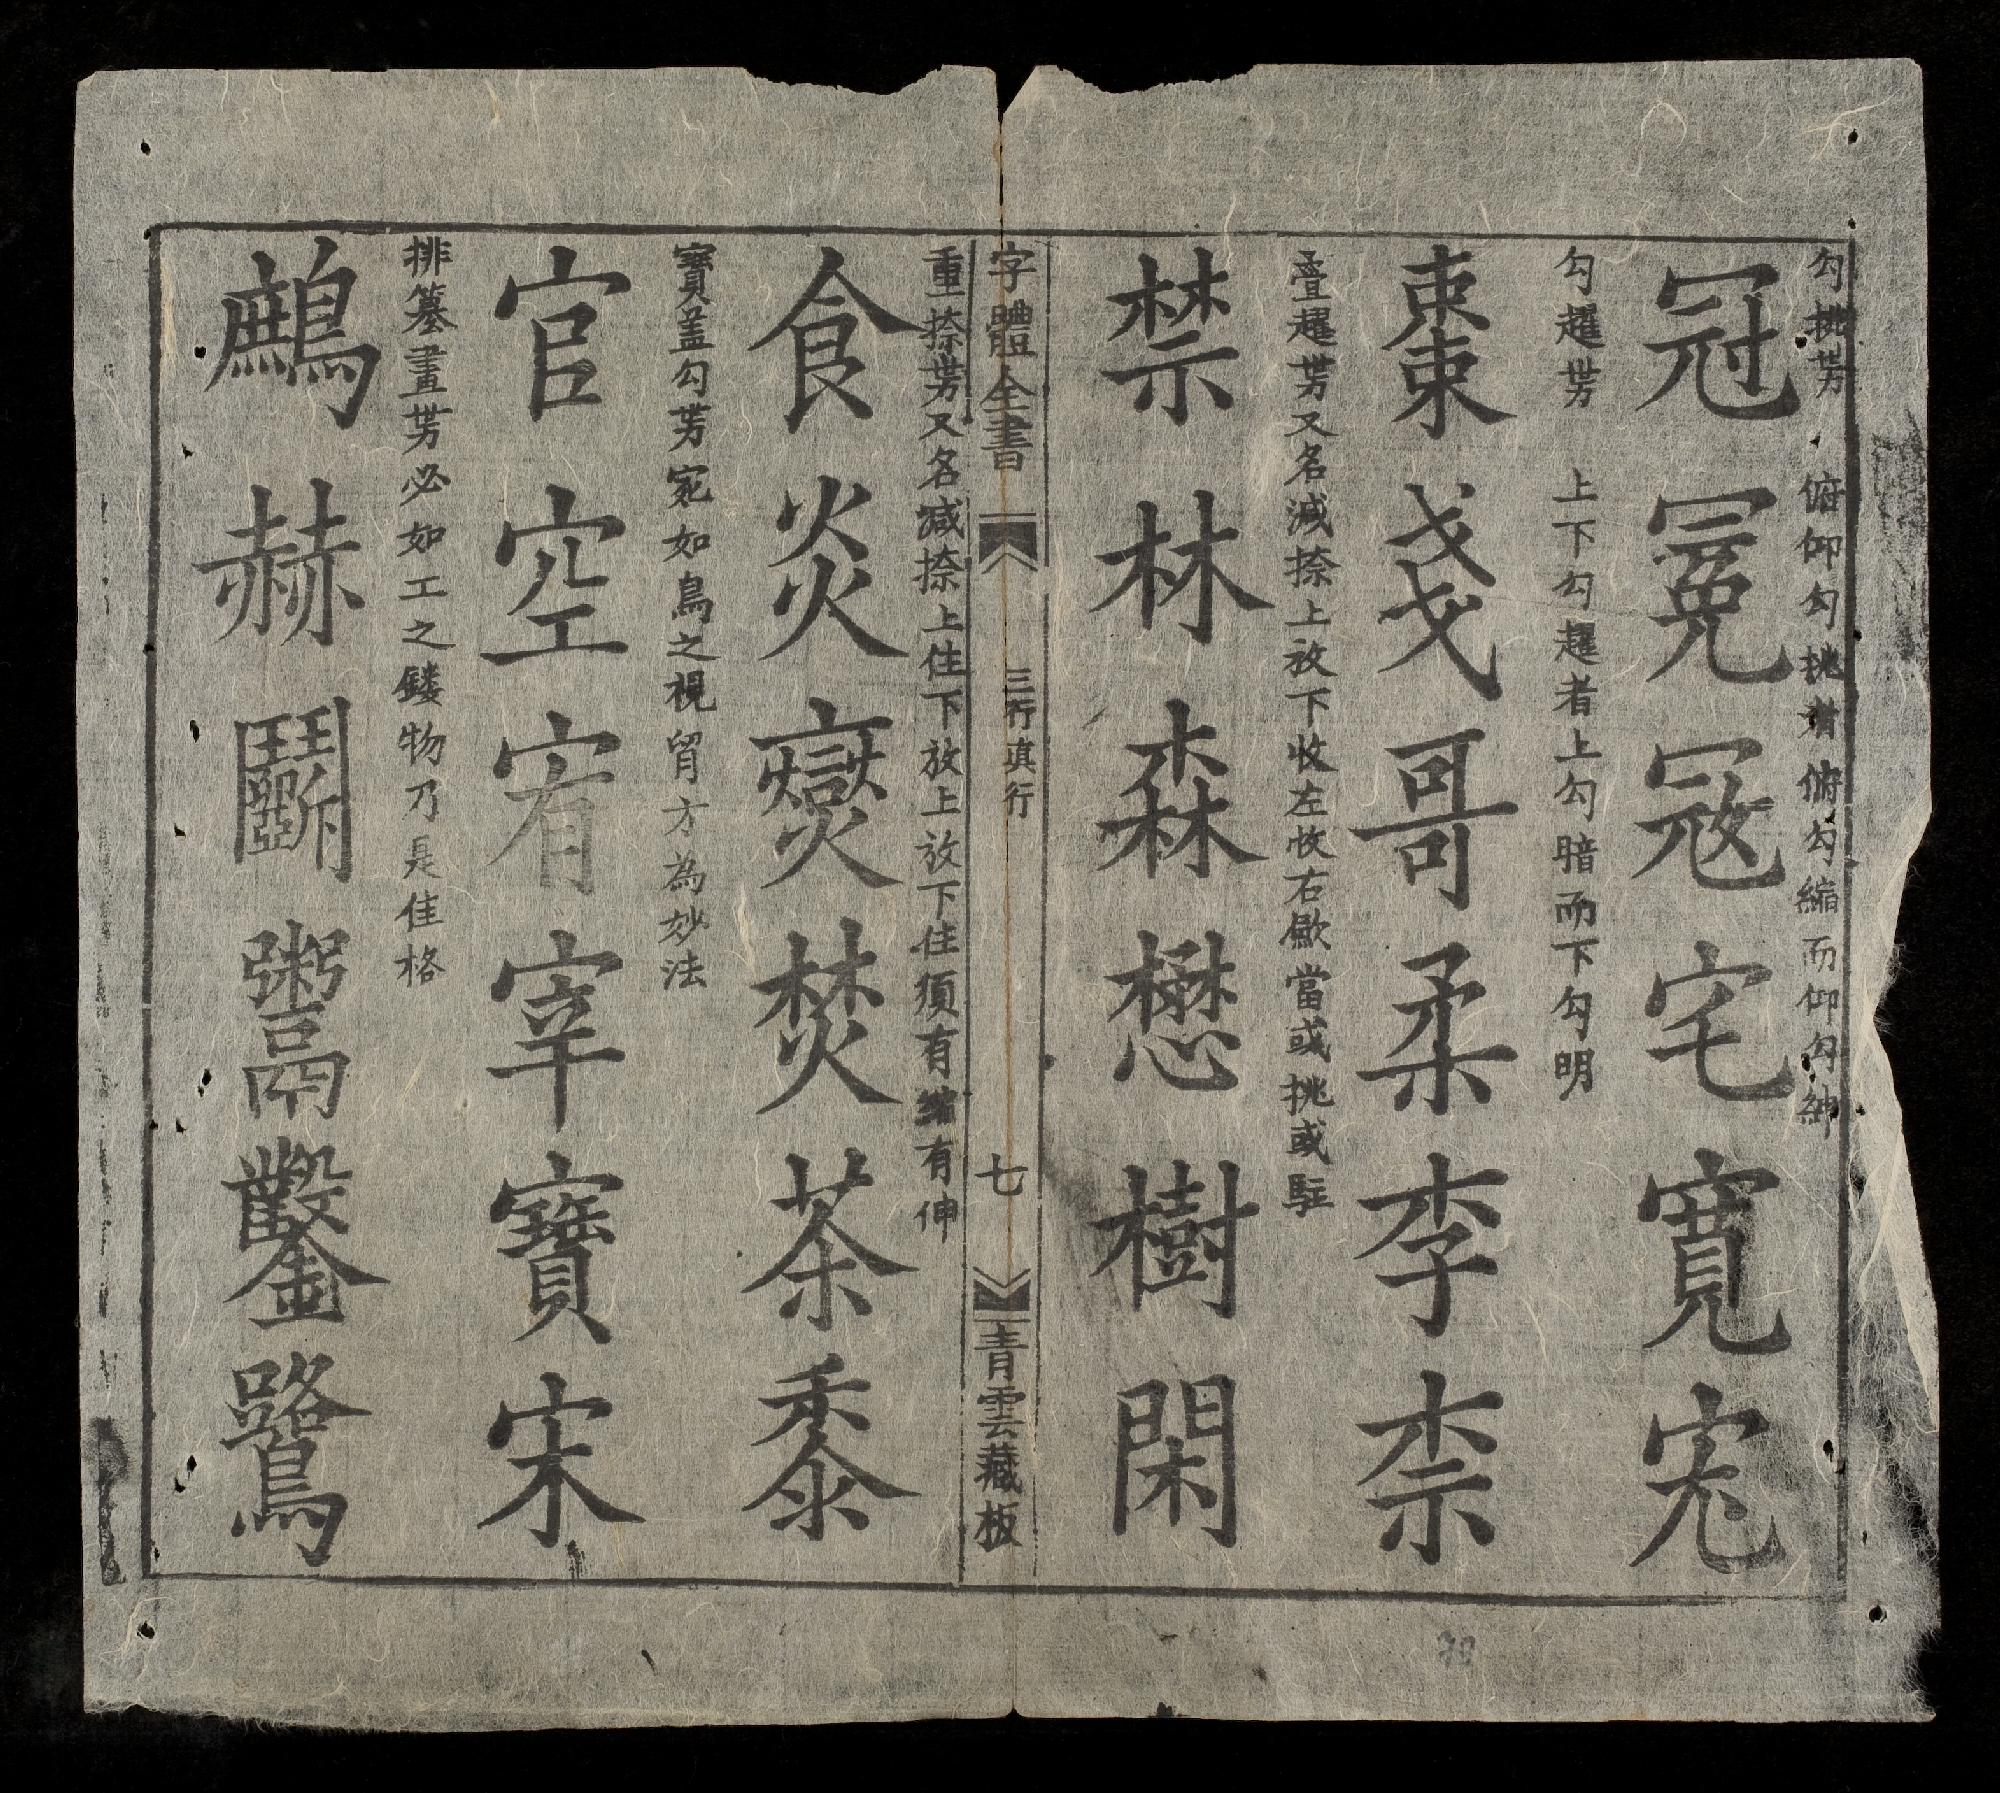 勾挑势　俯仰勾挑者俯勾縮而仰勾紳
冠冕冦宅寬宄
勾趯势　上下勾趯者上勾暗而下勾明
棗戔哥柔李柰
疊趯势又名减捺上放下收左收右歛當或挑或駐
禁林森懋樹閑
字體全書　三行真行　七　青雲藏板
重捺势又名减捺上住下放上放下住須有縮有伸
食炎燮焚茶黍
寶盖勾势宛如鳥之視胷方為妙法
官空宥宰寶宋
排篡畫势必如工之鏤物乃是佳格
鷓赫鬭鬻鑿鷺